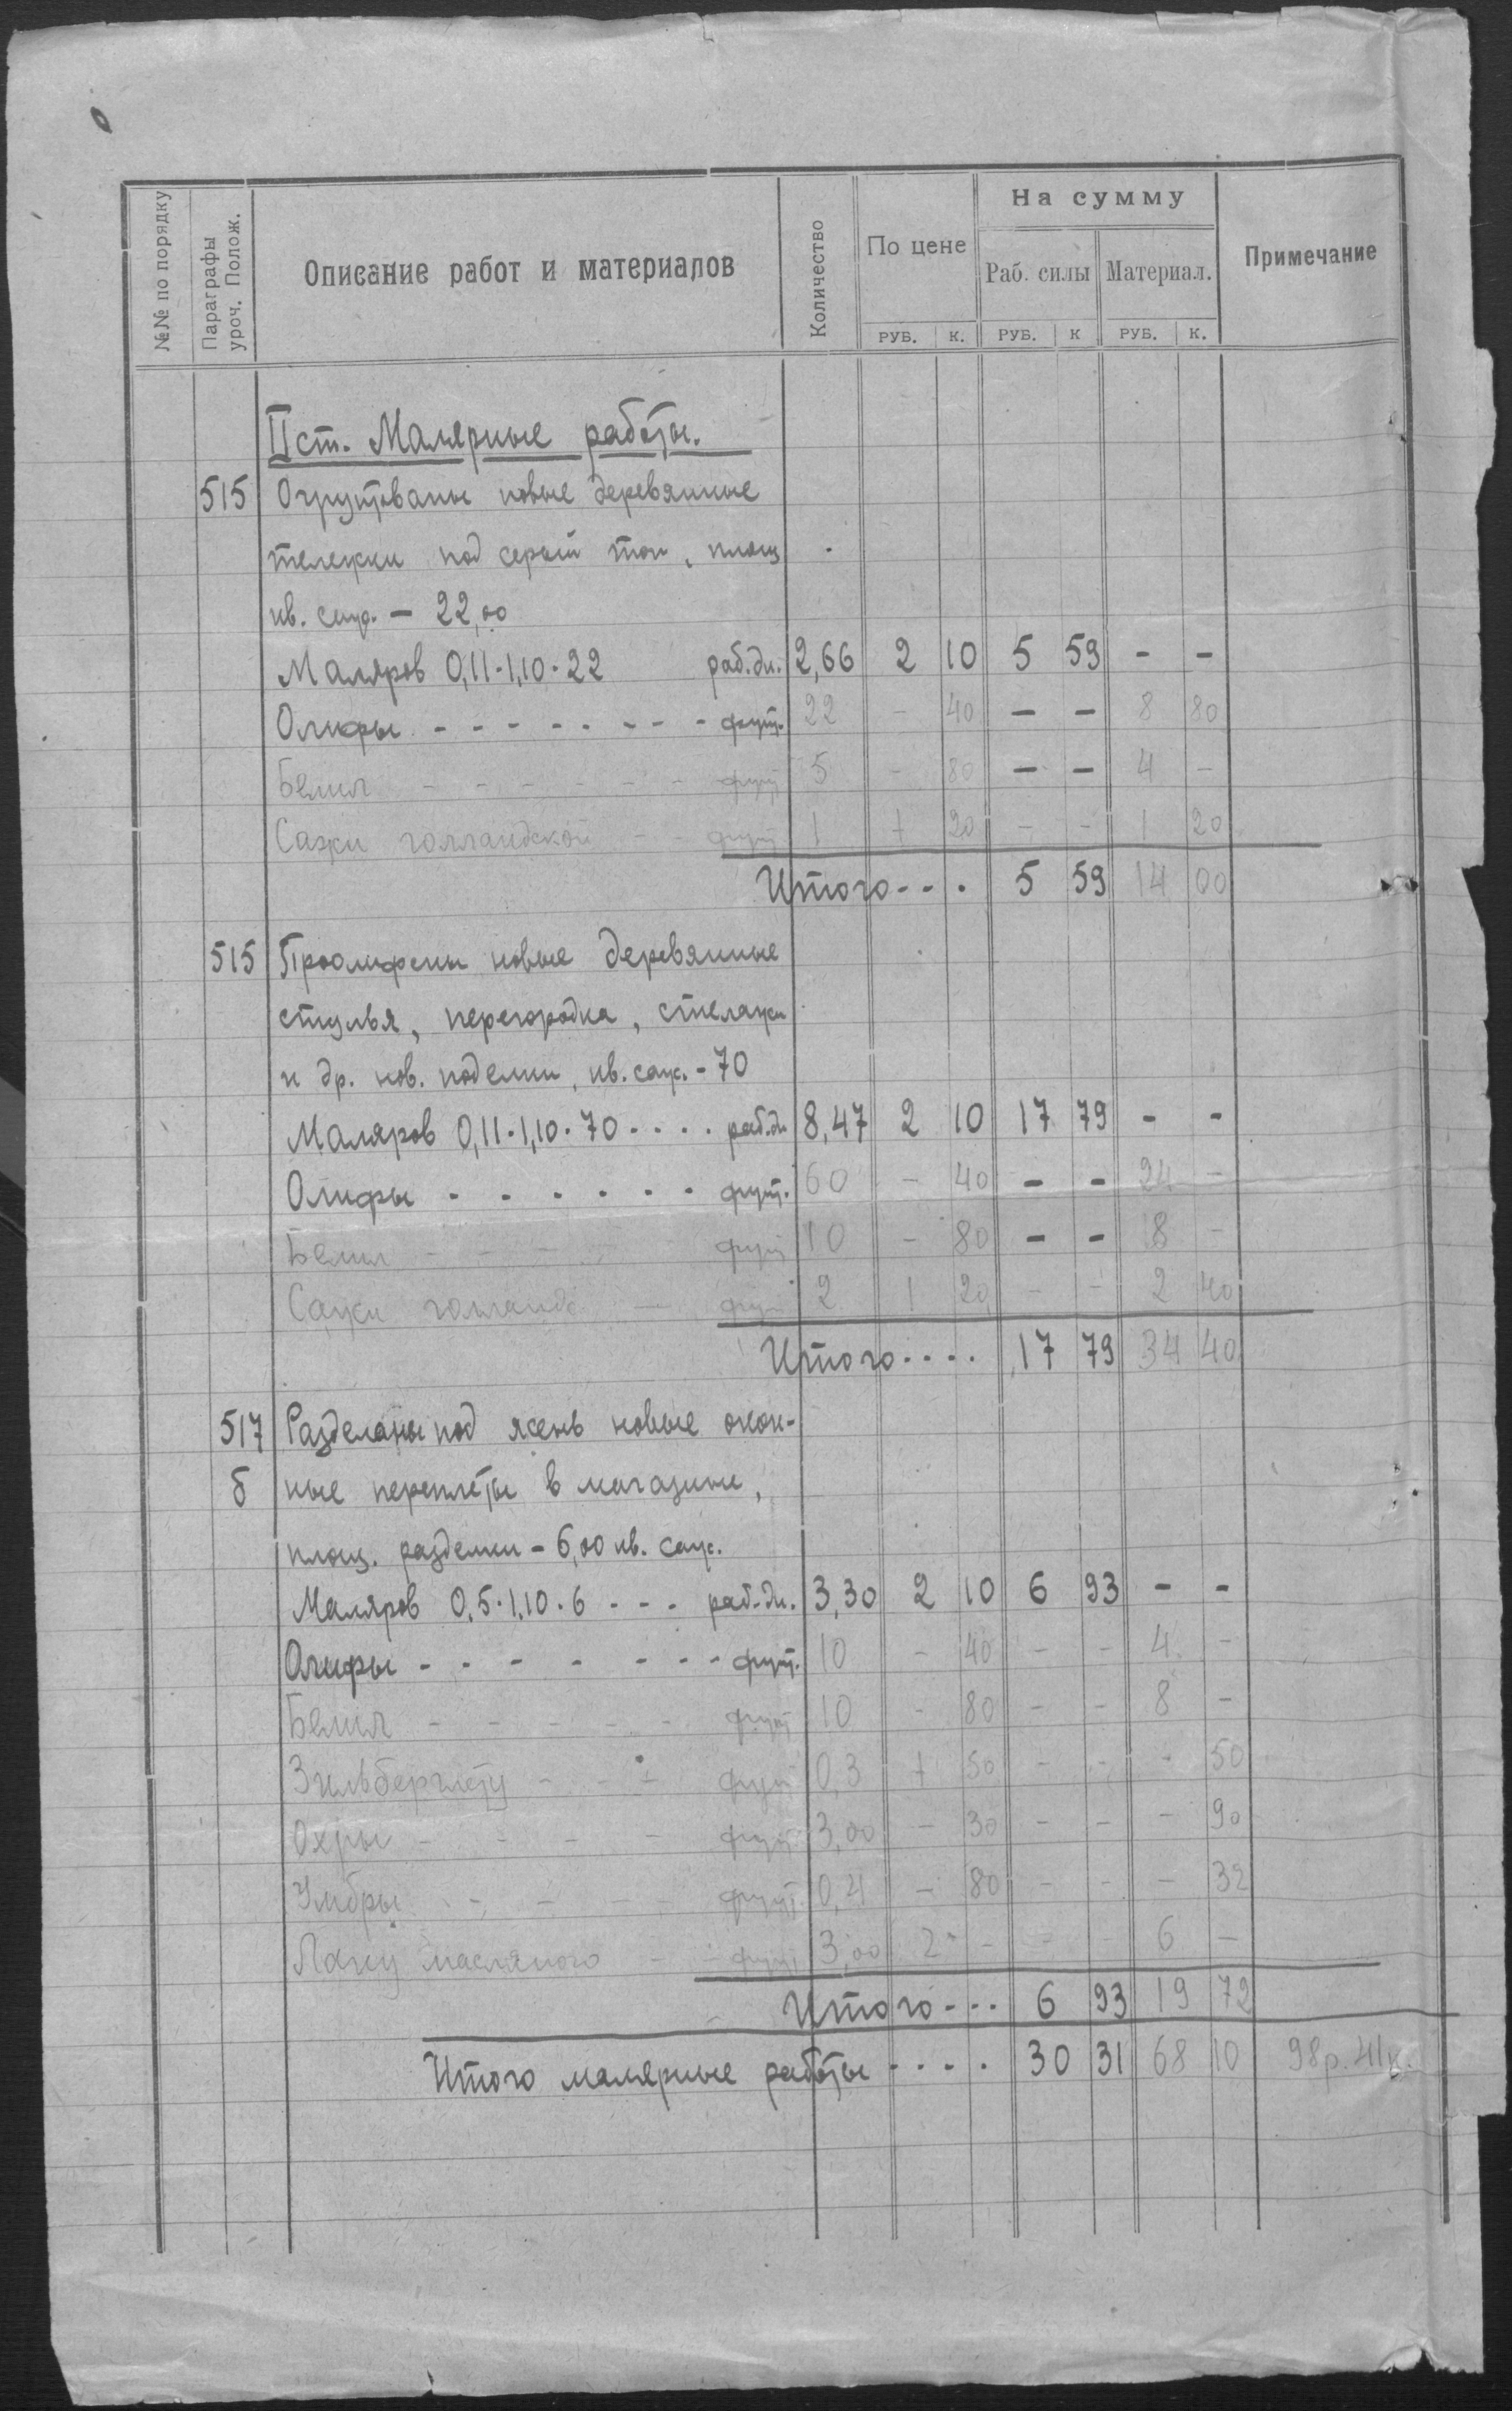 №№ по порядку
Параграфы уроч. Полож.
Описание работ и материалов
Количество
По цене
На сумму
Раб. силы
Материал.
Примечание
РУБ. К. РУБ. К РУБ. К.
II ст. Малярные работы.
515 Огрунтованы новые деревянные
под серый тон, площ
кв. саж. – 22,00
Маляров 0,11·1,10·22 раб.дн. 2,66 2 10 5 59 - -
Олифы - - - - - - - - фунт. 22 - 40 - - 8 80
Белил - - - - - - фунт 5 - 80 - - 4 -
Сажи голландской - - фунт 1 1 20 - - 1 20
Итого - - . 5 59 14 00
515 Проолифены новые деревянные
стулья, перегородка, стелажи
и др. нов. поделки, кв. саж. - 70
Маляров 0,11·1,10·70 . . . . раб.дн 8,47 2 10 17 79 - -
Олифы - - - - - - фунт. 60 - 40 - - 24 -
Белил - - - - фунт 10 - 80 - - 8 -
Сажи голландс - фун 2 1 20 - - 2 40
Итого . . . . 17 79 34 40
517 Разделаны под ясень новые окон-
б ные переплеты в магазине,
площ. разделки – 6,00 кв. саж.
Маляров 0,5·1,10·6 - - - раб.дн. 3,30 2 10 6 93 - -
Олифы - - - - - - - фунт. 10 - 40 - - 4 -
Белил - - - - - фунт 10 - 80 - - 8 -
Зильберглету - - - фунт 0,3 1 50 - - - 50
Охры - - - - фунт 3,00 - 30 - - - 90
Умбры - - - - - фунт. 0,4 - 80 - - - 32
Лаку масляного - - фунт 3,00 2 - - - 6 -
Итого - - - 6 93 19 72
Итого малярные работы - - - . 30 31 68 10 98р. 41к.